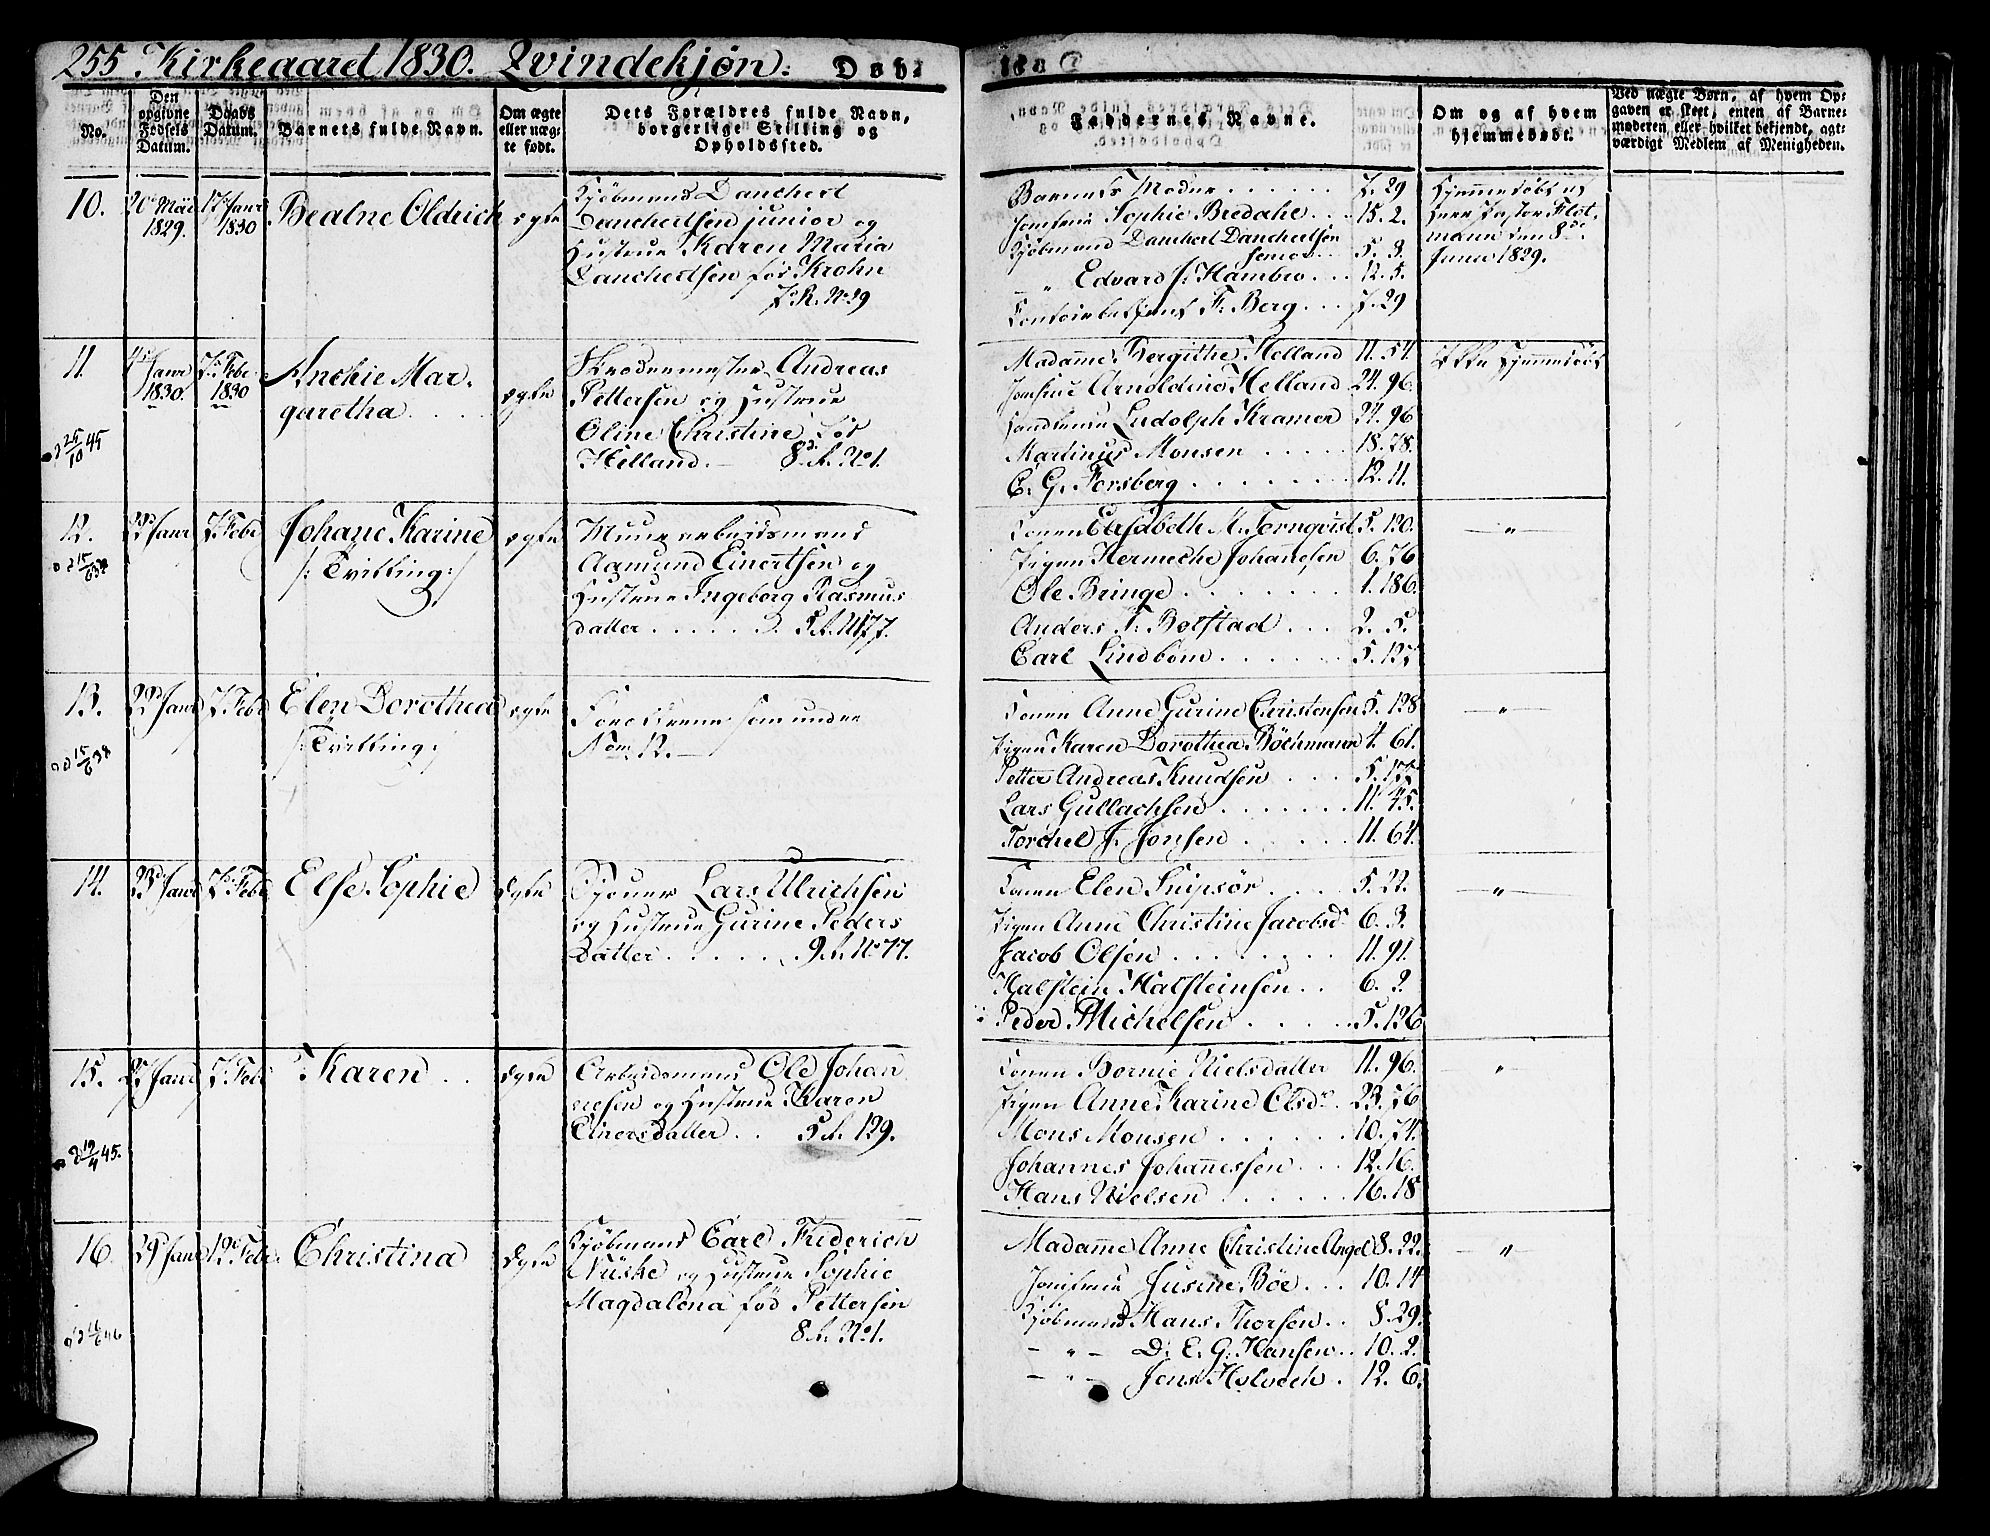 255 Kirkeaaret 1830. Qvindekjøn. Døb-
No.
Den opgivne Fødsels Datum.
Daabs Datum.
Barnets fulde Navn.
Om ægte eller uæg- te født.
Dets Forældres fulde Navn, borgerlige Stilling og Opholdssted.
Faddernes Navne.
Om og af hvem hjemmedøbt.
Ved uægte Børn, af hvem Op- gaven er skeet, enten af Barne- moderen eller hvilket bekjendt, agt- værdigt Medlem af Menigheden.
10.
1829.
17 Janr 1830
Oldrich
ægte
Kjøbmand Danchert
Danchertsen junior og
Hustrue Karen Maria
Danchertsen før Krohn
7. R. No 29
Barnets Moder . . . . . . 7. 29
Jomfrue Sophie Bredahl . . . 15. 2.
Kjøbmand Danchert Danchertsen
senior . . 5. 3.
— „ Edvard J. Hambro . . . 12. 5.
F. Berg . . . 7. 29
Hjemmedøbt af
Herr Pastor Flot-
mann den 8de
Junii 1829.
11.
4de Janr 1830.
7de Febr 1830
Anchie Mar-
garetha . . . .
ægte
Skredermester Andreas
Pettersen og Hustrue
Oline Christine fød
Helland. — 8de R. No 1.
25/10 45
Madamme Bergithe Helland 11. 54.
Jomfrue Arnoldine Helland 24. 96.
Ludolph Kramer 24. 96
Martinus Monsen . . . . . 18. 78.
C. G. Forsberg . . . . . . . 12. 11.
Ikke hjemmedøbt
12.
22 Janr
7 Febr
Johane Karine
/: Tvilling :/
ægte
Muurarbeidsmand
Aamund Einertsen og
Hustrue Ingeborg Rasmus
datter . . . . . 5 R. N 177.
15/6 38
Konen Elisabeth M. Tornqvist 5. 120.
Pigen Hermeche Johanesen 6. 76
Ole Bringe . . . . . . . . 1. 186.
Anders T. Bolstad . . . 2. 5.
Carl Lindbom . . . . . .
— „ —
13.
22 Janr
7. Febr
Elen Dorothea
/: Tvilling :/
ægte
Forældrene som under
Nom. 12. —
15/6 38
Konen Anne Gurine Christensen 5. 128
Pigen Karen Dorothea Böchmann 1. 61.
Petter Andreas Knudsen . . . .
Lars Gullachsen . . . . . . . 11. 45.
Torchel J. Jonsen . . . . . 11. 64.
— „ —
14.
23 Janr
7. Febr
Else Sophie
ægte
Lars Ulrichsen
og Hustrue Gurine Peders
Datter . . . . . . 9 R. No 77.
Konen Elen Snipsör . . . . 5. 22.
Pigen Anne Christine Jacobsd. 6. 3.
Jacob Olsen . . . . . . . . 11. 91.
Halstein Halsteinsen . . 6. 2.
Peder Michelsen . . . . . 5. 126
— „ —
15.
25 Janr
7. Febr
Karen . .
ægte
Arbeidsmand Ole Johan
nesen og Hustrue Karen
Einersdatter . . 5 R. 129.
12/4 45.
Konen Bornie Nielsdatter 11. 96.
Pigen Anne Karine Olsdr. 23. 56
Mons Monsen . . . . . . 10. 74.
Johannes Johannessen . . . 12. 16.
Hans Nielsen . . . . . . 16. 18
„
16
29 Janr
12 Febr.
Christina
ægte
Kjøbmand Carl Friderich
Nüske og Hustrue Sophie
Magdalena fød Pettersen
8 R. No 1.
Madamme Anne Christine Angel 8. 22.
Jomfrue Jusine Böe . . . 10. 14
Kjøbmand Hans Thorsen . . 8. 29.
— „ — D. E. G. Hansen . . 10. 2.
— „ — Jens Holvech . 12. 6.
— „ —